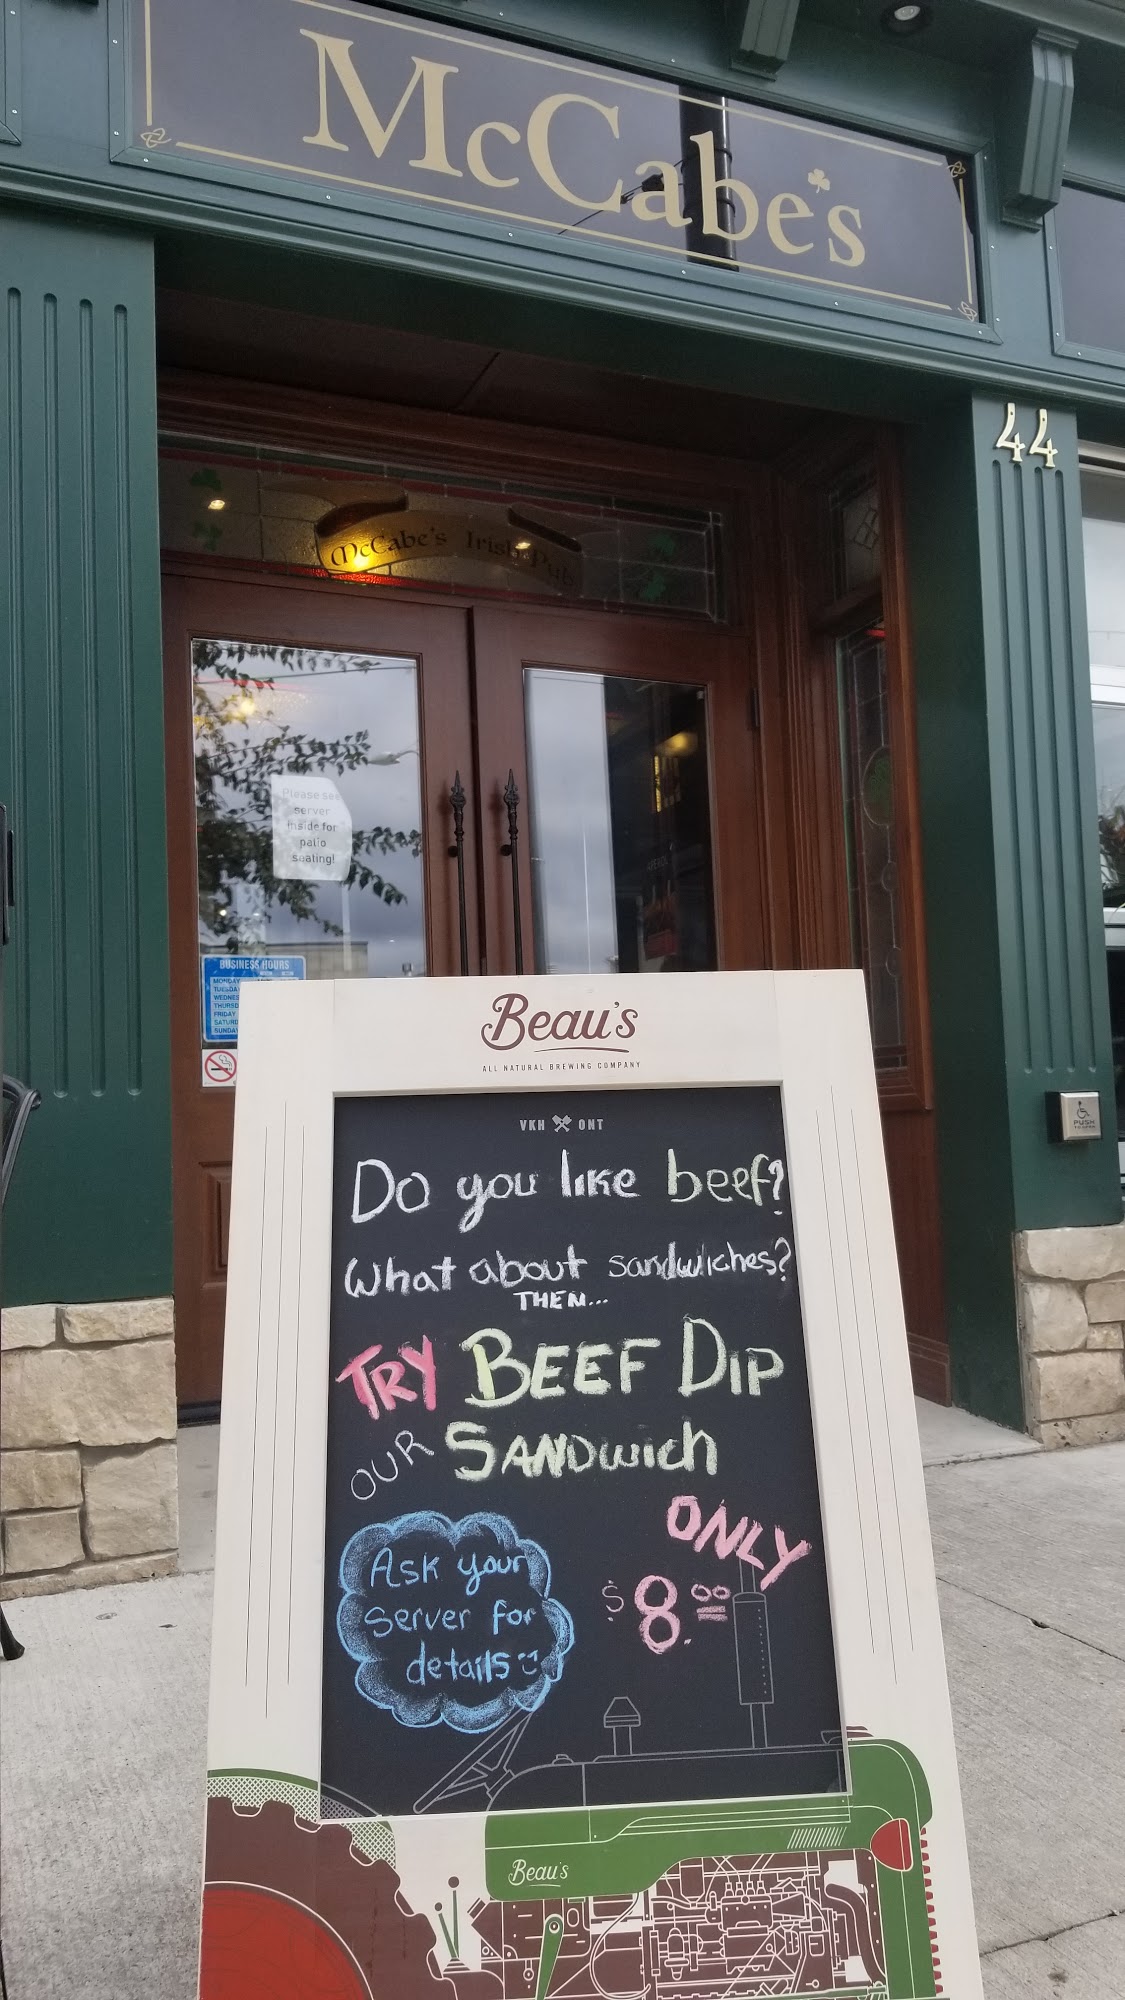 McCabe's
44
McCabe's Irish Pub
Please see
server
inside for
patio
seating!
BUSINESS HOURS
MONDAY
TUESDA
WEDNES
THURSD
FRIDAY
SATURD
SUNDA
PUSH
Beau's
ALL NATURAL BREWING COMPANY
VKH ONT
Do you like beef?
What about sandwiches?
THEN...
TRY BEEF DIP
OUR SANDwich
ONLY
$8.00
Ask your
server for
details
Beau's